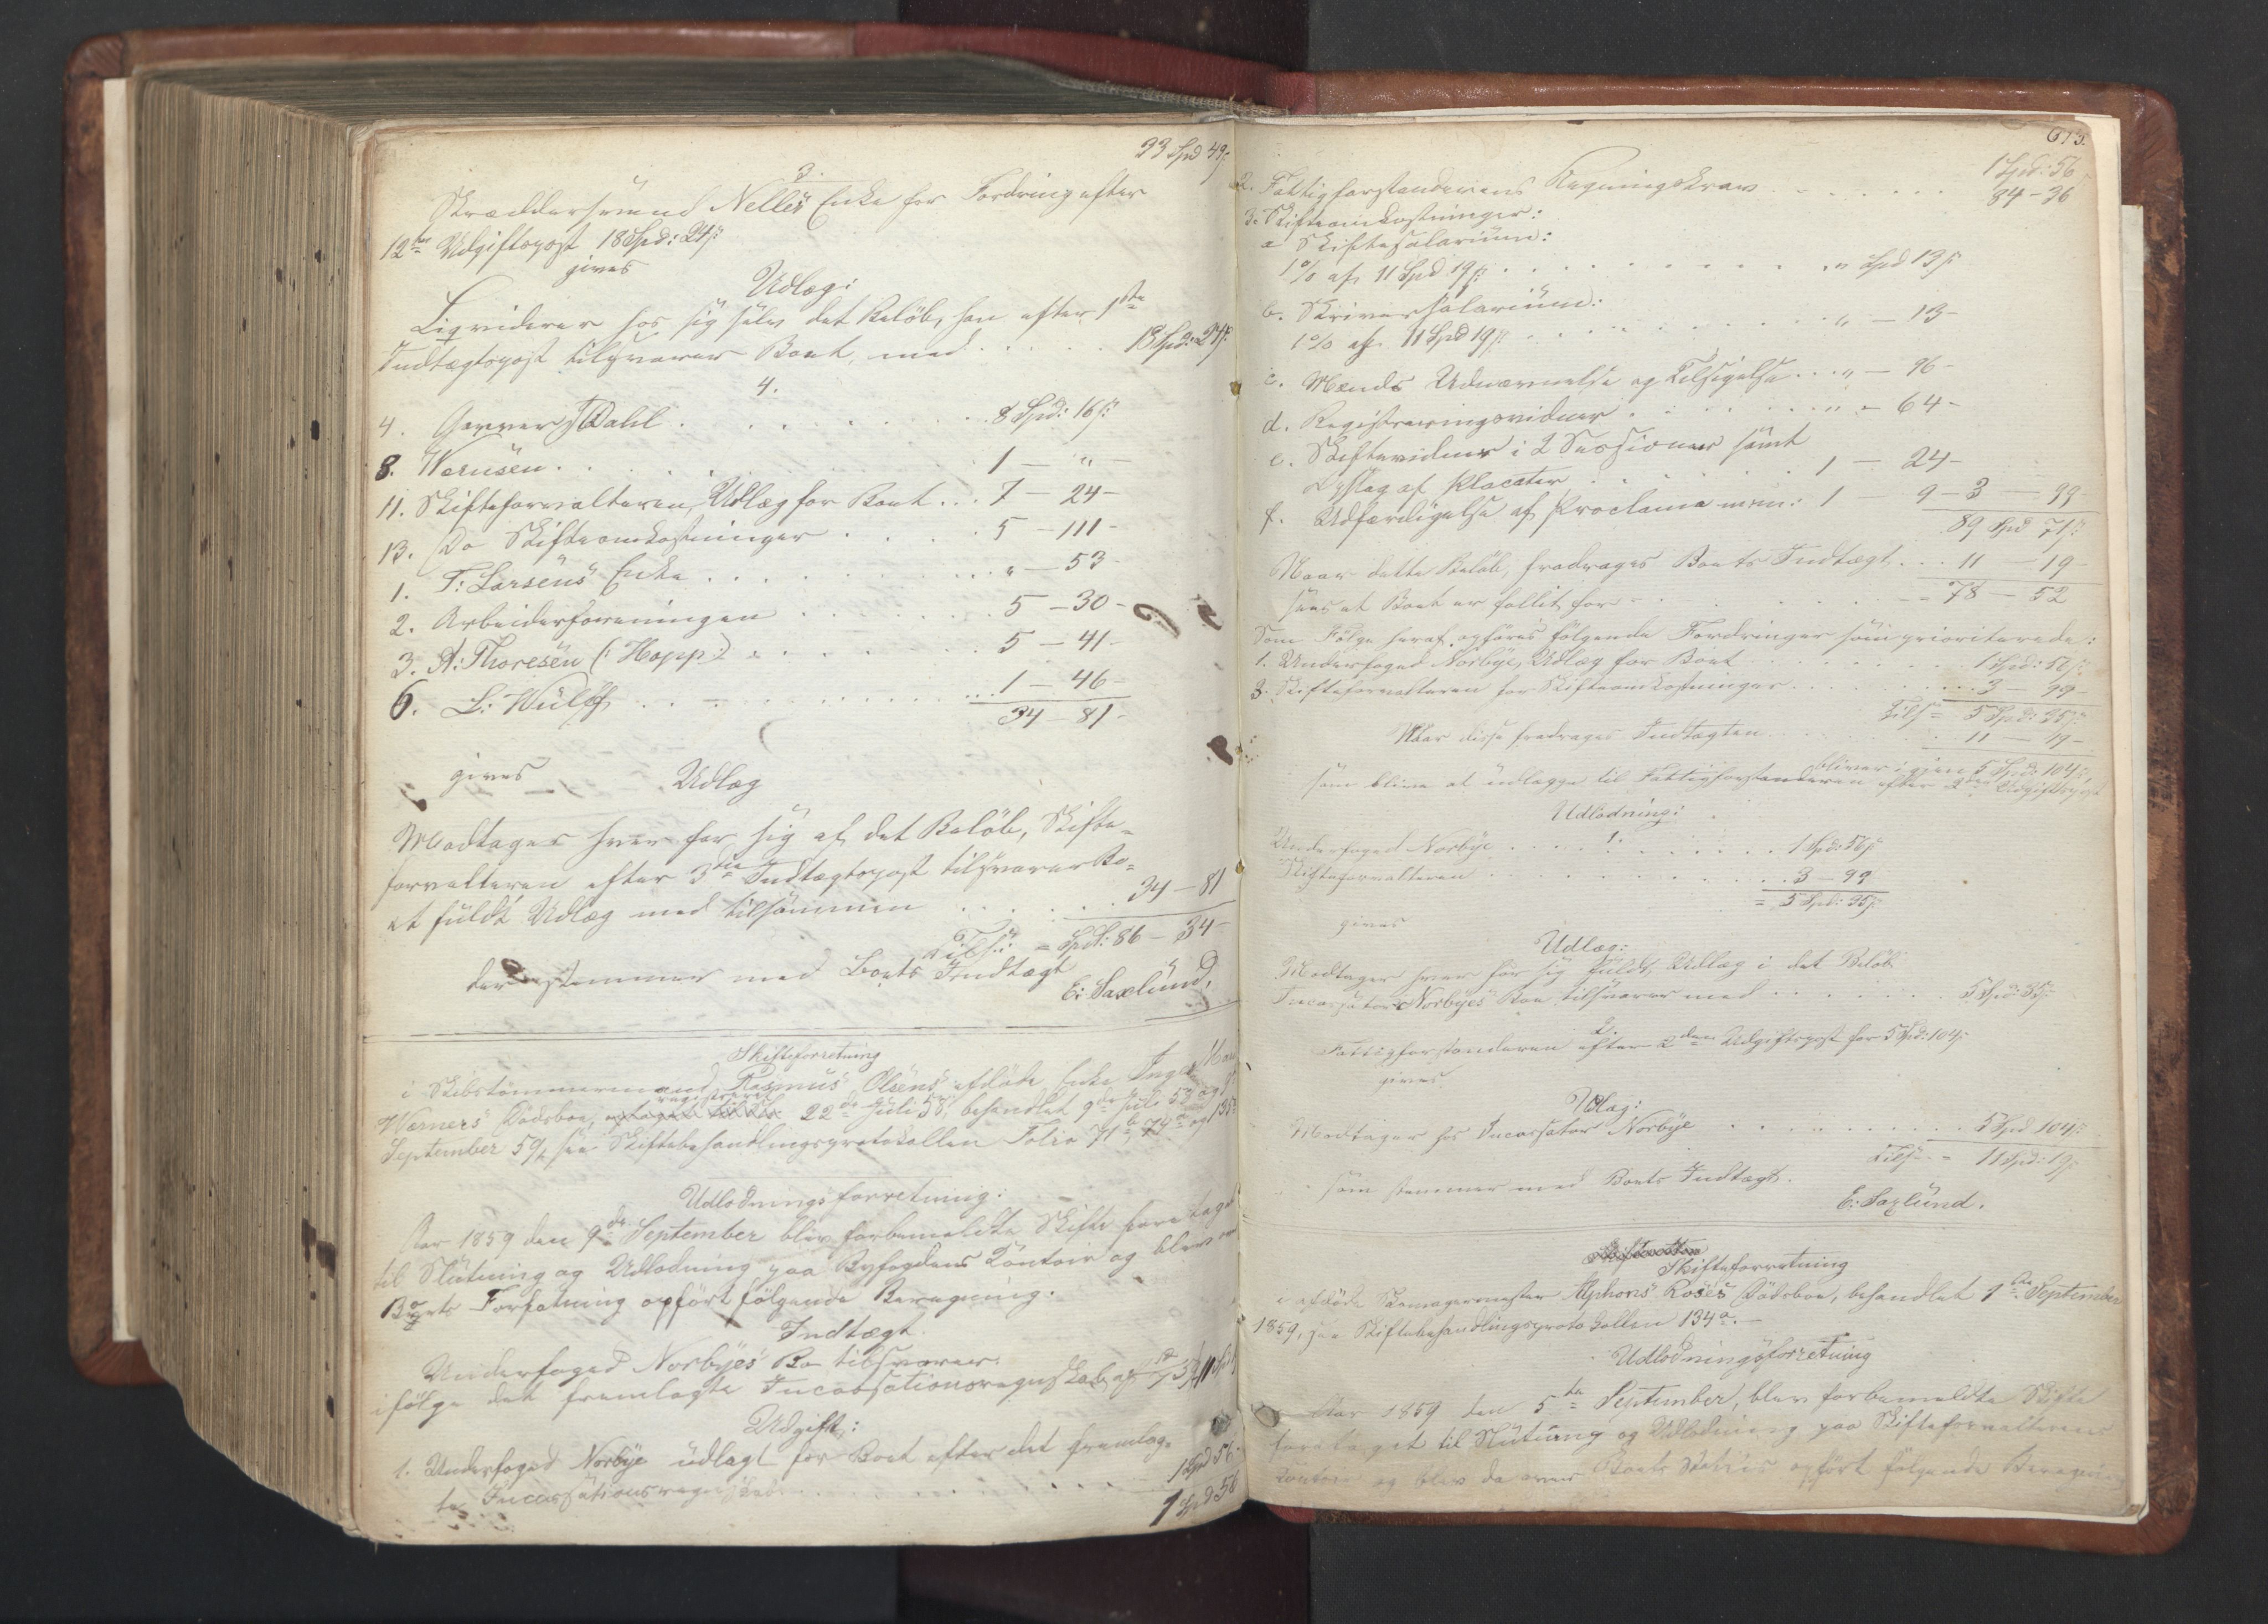 33 Spd 49ß
3.
Skræddersvend Nellis Enke for Fordring efter
12te Udgiftspost 18 Spd: 24ß
gives
Udlæg:
Liqviderer hos sig selv det Beløb, han efter 1ste
Indtægtspost tilsvarer Boet, med . . . . 18 Spd: 24ß
4.
4. Garver J Dahl . . . . . . 8 Spd: 16ß
8. Wernsen . . . . . . 1 — "
11. Skifteforvalteren, Udlæg for Boet . . 7 — 24 -
13. Do Skifteomkostninger . . . . 5 — 111 -
1. T: Larsens Enke . . . . . . " — 53 -
2. Arbeiderforeningen . . . . . 5 — 30 -
3. A: Thoresen (: Hopp :) . . . . . 5 — 41 -
6. L: Wulff . . . . . . . 1 — 46 -
34 — 81 -
gives
Udlæg
Modtages hver for sig af det Beløb, Skifte-
forvalteren efter 3die Indtægtspost tilsvarer Bo-
et fuldt Udlæg med tilsammen . . . . . 34 — 81
Tils: = Spd: 86 — 34 -
der stemmer med Boets Indtægt
E: Saxlund.
Skifteforretning
i Skibstømmermand Rasmus Olsens afdøde Enke Inger
Werners Dødsboe, registreret 22de Juli 58, behandlet 9de Juli 58 og
September 59, see Skiftebehandlingsprotokollen Folio 71b, 74a og 135
Udlodningsforretning:
Aar 1859 den 9de September blev forbemeldte Skifte foretaget
til Slutning og Udlodning paa Byfogdens Contoir og blev
Boets Forfatning opført følgende Beregning.
Indtægt.
Underfoged Norbyes Bo tilsvarer
ifølge det fremlagte Incassationsregnskab af 11 Spd
Udgift:
1. Underfoged Norbye udlagt for Boet efter det fremlag-
te Incassationsregnskab . . . . . . 1 Spd 56
1 Spd 56
613.
1 Spd: 56
2. Fattigforstanderens Regningskrav . . . . . . 84 - 36
3. Skifteomkostninger:
a. Skiftesalarium:
1% af 11 Spd 19ß . . . . . . . . " Spd 13ß
b. Skriversalarium:
1% af 11 Spd 19ß . . . . . . . . " — 13 -
c. Mænds Udnævnelse og Tilsigelse . . . " — 96 -
d. Registreringsvidner . . . . . . " — 64 -
e. Skiftevidner i 2 Sessioner samt
Opslag af Placater . . . . . . 1 — 24 -
f. Udfærdigelse af Proclama m:m: 1 — 9 - 3 — 99
89 Spd 71ß
Naar dette Beløb, fradrages Boets Indtægt . . . 11 — 19 -
sees at Boet er fallit for . . . . . . 78 — 52
Som Følge heraf opføres følgende Fordringer som prioriterede:
1. Underfoged Norbye, Udlæg for Boet . . . . . . 1 Spd: 56ß
3. Skifteforvalteren for Skifteomkostninger . . . . . 3 — 99 -
Tils = 5 Spd: 35ß
Naar disse fradrages Indtægten . . . . 11 — 19 -
bliver igjen 5 Spd: 104ß,
som blive at udlægge til Fattigforstanderen efter 2den Udgiftspost
Udlodning:
1.
Underfoged Norbye . . . . . . . 1 Spd: 56ß
Skifteforvalteren . . . . . . . 3 — 99
= 5 Spd: 35ß
gives
Udlæg:
Modtager hver for sig fuldt Udlæg i det Beløb
Incassator Norbyes Boe tilsvarer med . . . . . 5 Spd: 35ß
2.
Fattigforstanderen efter 2den Udgiftspost for 5 Spd: 104ß
gives
Udlæg:
Modtager hos Incassator Norbye . . . . . . 5 Spd 104ß
Tils. = 11 Spd: 19ß
som stemmer med Boets Indtægt.
E: Saxlund.
Skifteforretning
i afdøde Skomagermester Alphons Roses Dødsboe, behandlet 1ste September
1859, see Skiftebehandlingsprotokollen 134a. —
Udlodningsforretning
Aar 1859 den 5te September, blev forbemeldte Skifte
foretaget til Slutning og Udlodning paa Skifteforvalterens
Contoir og blev da over Boets Status opført følgende Beregning